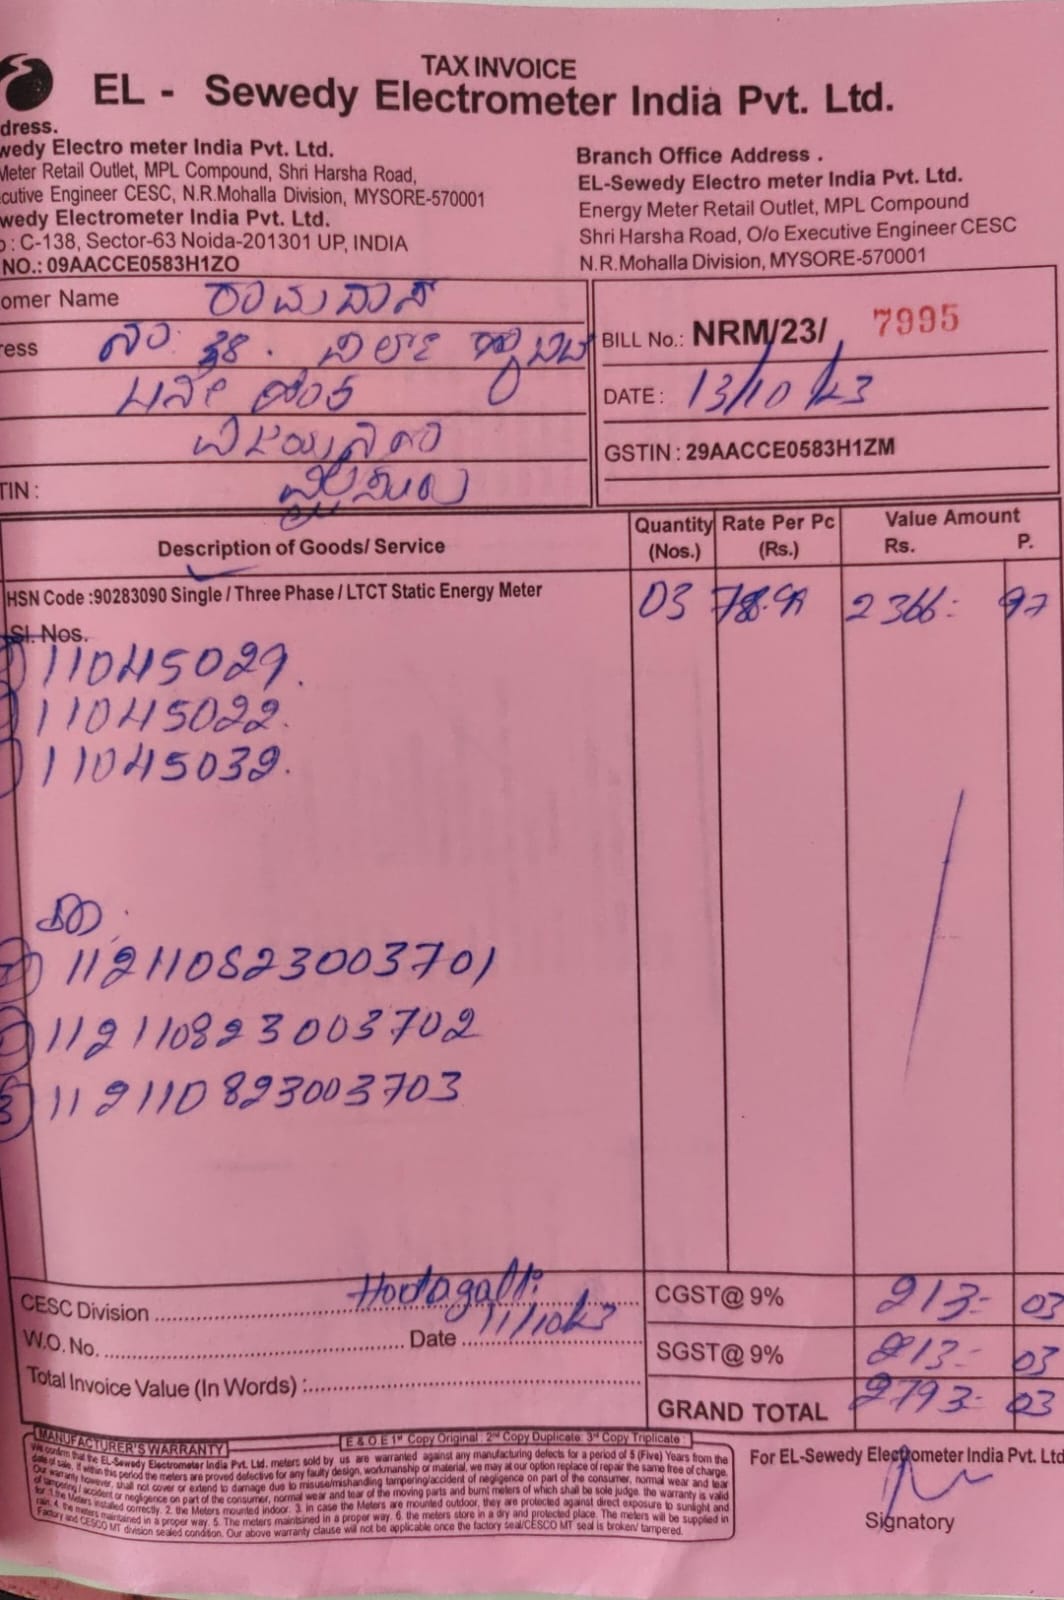 TAX INVOICE
EL - Sewedy Electrometer India Pvt. Ltd.
dress.
wedy Electro meter India Pvt. Ltd.
Meter Retail Outlet, MPL Compound, Shri Harsha Road,
cutive Engineer CESC, N.R.Mohalla Division, MYSORE-570001
wedy Electrometer India Pvt. Ltd.
: C-138, Sector-63 Noida-201301 UP, INDIA
NO.: 09AACCE0583H1ZO
Branch Office Address .
EL-Sewedy Electro meter India Pvt. Ltd.
Energy Meter Retail Outlet, MPL Compound
Shri Harsha Road, O/o Executive Engineer CESC
N.R.Mohalla Division, MYSORE-570001
omer Name ರಾಮದಾಸ್
ress ನಂ. 38.
ವಿಜಯನಗರ
TIN : ಮೈಸೂರು
BILL No.: NRM/23/ 7995
DATE : 13/10/23
GSTIN : 29AACCE0583H1ZM
Description of Goods/ Service Quantity (Nos.) Rate Per Pc (Rs.) Value Amount Rs. P.
HSN Code :90283090 Single / Three Phase / LTCT Static Energy Meter 03 2366: 97
Sl. Nos.
11045029.
11045022.
11045039.
112110823003701
112110823003702
3 112110823003703
CESC Division Hootagalli
W.O. No. Date 11/10/23
Total Invoice Value (In Words) :
CGST@ 9% 213- 03
SGST@ 9% 213- 03
GRAND TOTAL 2793- 03
E & O.E 1st Copy Original : 2nd Copy Duplicate: 3rd Copy Triplicate :
MANUFACTURER'S WARRANTY
We confirm that the EL-Sewedy Electrometer India Pvt. Ltd. meters sold by us are warranted against any manufacturing defects for a period of 5 (Five) Years from the
date of sale. If within this period the meters are proved defective for any faulty design, workmanship or material, we may at our option replace of repair the same free of charge.
Our warranty however, shall not cover or extend to damage due to misuse/mishandling tampering/accident of negligence on part of the consumer, normal wear and tear
of tampering / accident or negligence on part of the consumer, normal wear and tear of the moving parts and burnt meters of which shall be sole judge. the warranty is valid
for 1.the Meters installed correctly. 2. the Meters mounted indoor. 3. in case the Meters are mounted outdoor, they are protected against direct exposure to sunlight and
rain. 4. the meters maintained in a proper way. 5. The meters maintained in a proper way. 6. the meters store in a dry and protected place. The meters will be supplied in
Factory and CESCO MT division sealed condition. Our above warranty clause will not be applicable once the factory seal/CESCO MT seal is broken/ tampered.
For EL-Sewedy Electrometer India Pvt. Ltd
Signatory